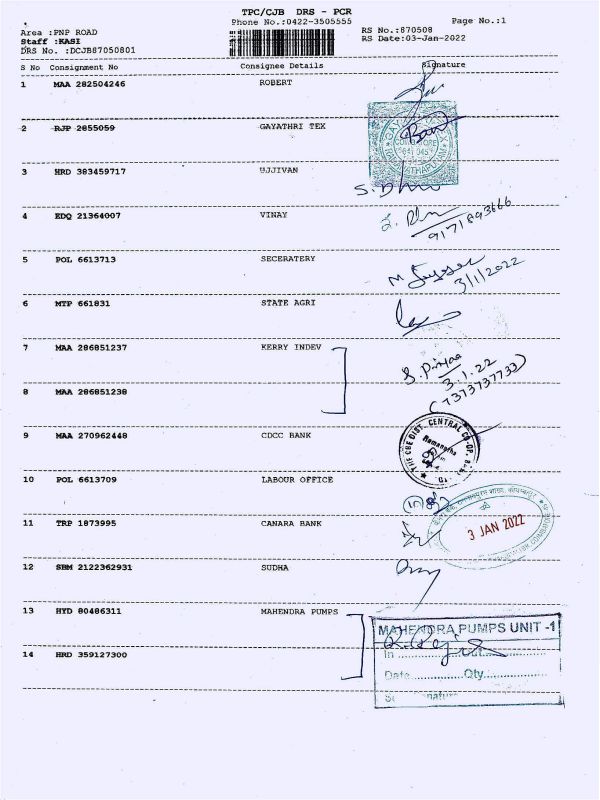 TPC/CJB DRS - PCR
Phone No.:0422-3505555 Page No.:1
Area :PNP ROAD RS No.:870508
Staff :KASI RS Date:03-Jan-2022
DRS No. :DCJB87050801
S No Consignment No Consignee Details Signature
1 MAA 282504246 ROBERT
2 RJP 2855059 GAYATHRI TEX
COIMBATORE
641 045
RAMANATHAPURAM
3 HRD 383459717 UJJIVAN
S. Dhu
4 EDQ 21364007 VINAY
9171893666
5 POL 6613713 SECERATERY
3/1/2022
6 MTP 661831 STATE AGRI
7 MAA 286851237 KERRY INDEV
S. Priyaa
3.1.22
(7373737733)
8 MAA 286851238
9 MAA 270962448 CDCC BANK
THE CBE DIST. CENTRAL CO-OP. 
Ramanatha
10 POL 6613709 LABOUR OFFICE
11 TRP 1873995 CANARA BANK
3 JAN 2022
12 SBM 2122362931 SUDHA
13 HYD 80486311 MAHENDRA PUMPS
MAHENDRA PUMPS UNIT -1
In ............Out............
Date ............Qty............
14 HRD 359127300